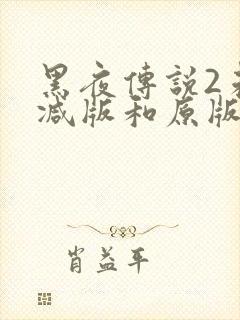 黑夜傳説2
減版和原版
肖益平